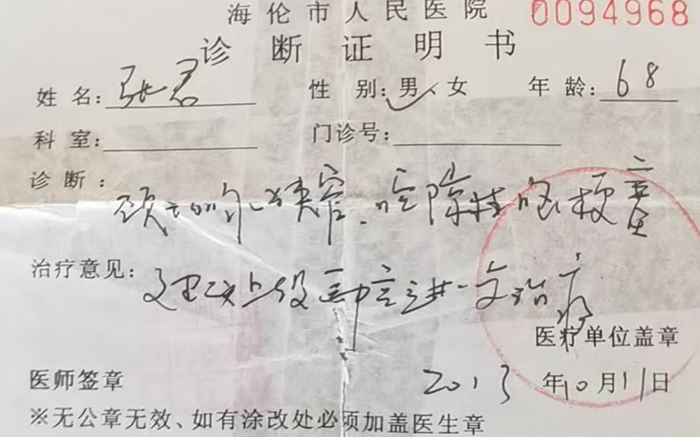 海伦市人民医院
0094968
诊断证明书
姓名：张君 性别：男✓女 年龄：68
科室： 门诊号：
诊断：
颈动脉狭窄 腔隙性脑梗塞
治疗意见：建议上级医院进一步治疗
医疗单位盖章
医师签章 2013年10月11日
※无公章无效、如有涂改处必须加盖医生章